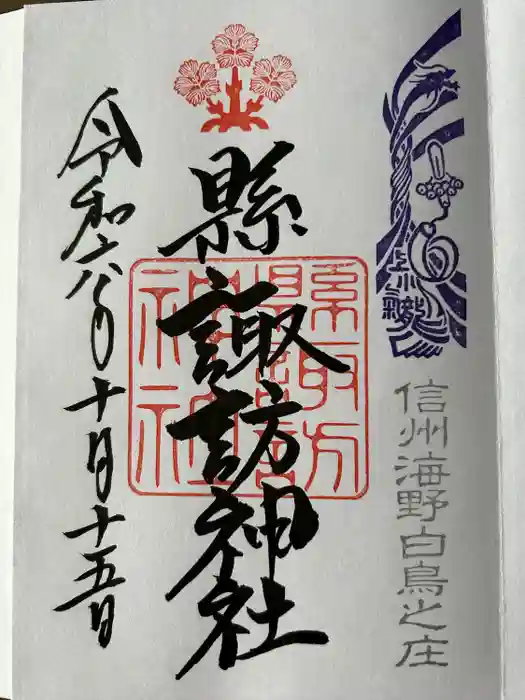 上小龍氣
信州海野白鳥之庄
縣諏訪神社
縣諏訪神社
令和六年十月十五日